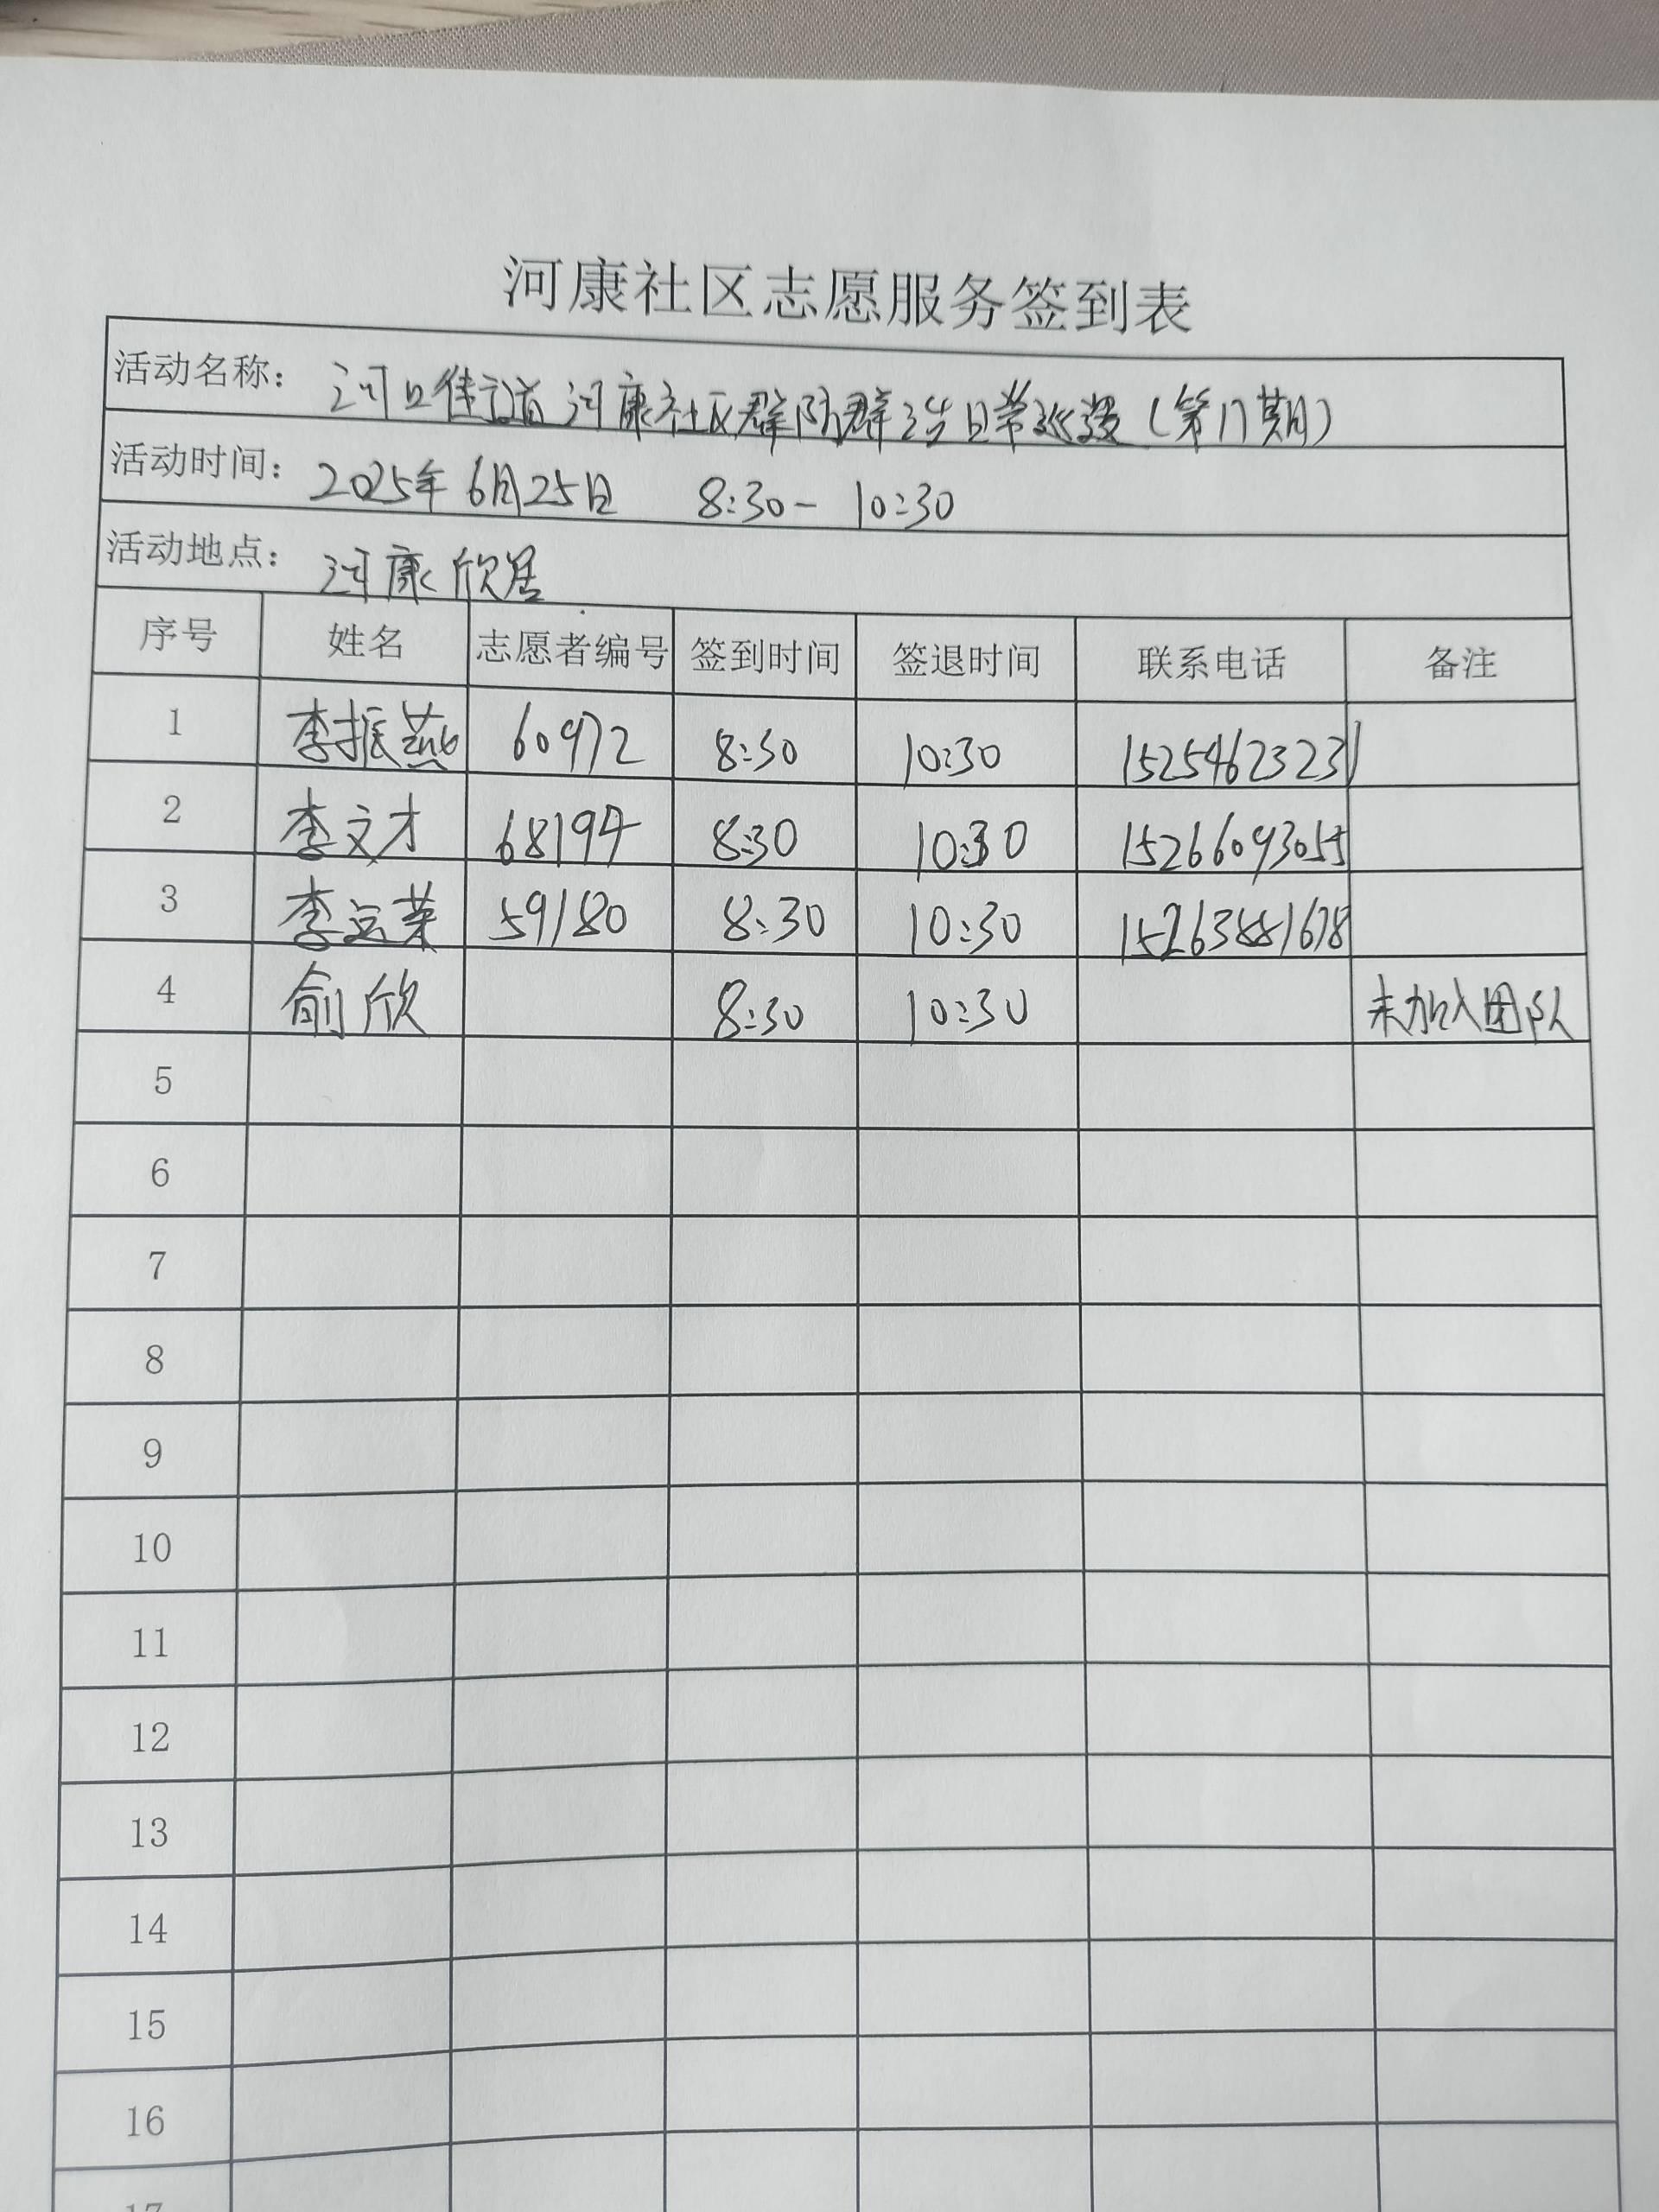 河康社区志愿服务签到表
活动名称: 河口街道河康社区群防群治日常巡逻(第17期)
活动时间: 2025年6月25日 8:30-10:30
活动地点: 河康欣居
序号 姓名 志愿者编号 签到时间 签退时间 联系电话 备注
1 李振燕 60972 8:30 10:30 15254623231
2 李文才 68194 8:30 10:30 15266093055
3 李运荣 59180 8:30 10:30
4 俞欣 8:30 10:30 未加入团队
5
6
7
8
9
10
11
12
13
14
15
16
17